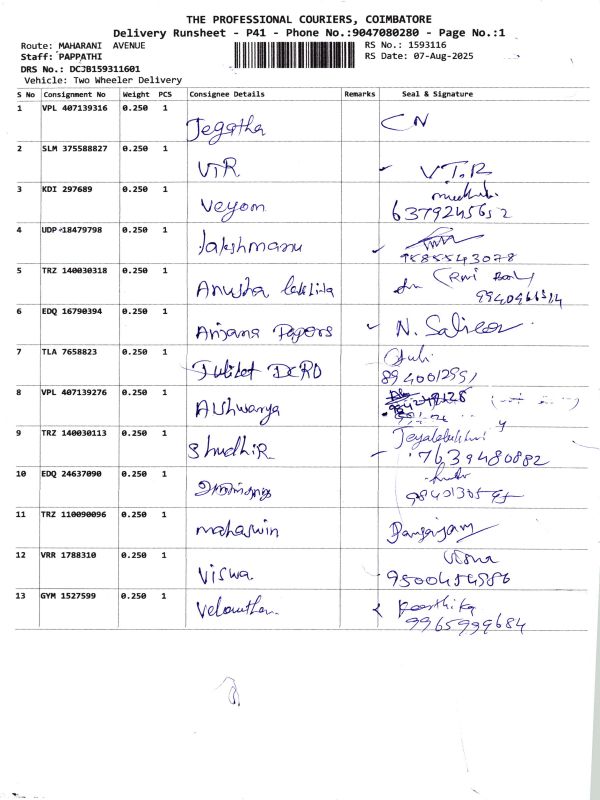 THE PROFESSIONAL COURIERS, COIMBATORE
Delivery Runsheet - P41 - Phone No.:9047080280 - Page No.:1
Route: MAHARANI AVENUE
RS No.: 1593116
Staff: PAPPATHI
RS Date: 07-Aug-2025
DRS No.: DCJB159311601
Vehicle: Two Wheeler Delivery
S No Consignment No Weight PCS Consignee Details Remarks Seal & Signature
1 VPL 407139316 0.250 1 Jegatha CN
2 SLM 375588827 0.250 1 VTR V.T.R
3 KDI 297689 0.250 1 Veyom
6379245652
4 UDP 18479798 0.250 1 lakshmanu
9585543078
5 TRZ 140030318 0.250 1 Anusha
6 EDQ 16790394 0.250 1 Anjana Papers N.
7 TLA 7658823 0.250 1 DCRD
8940012991
8 VPL 407139276 0.250 1 Aishwarya
9 TRZ 140030113 0.250 1 ShudhiR
7639480882
10 EDQ 24637090 0.250 1
11 TRZ 110090096 0.250 1 mahaswin
12 VRR 1788310 0.250 1 Viswa
9500454586
13 GYM 1527599 0.250 1 Keerthika
9965999684